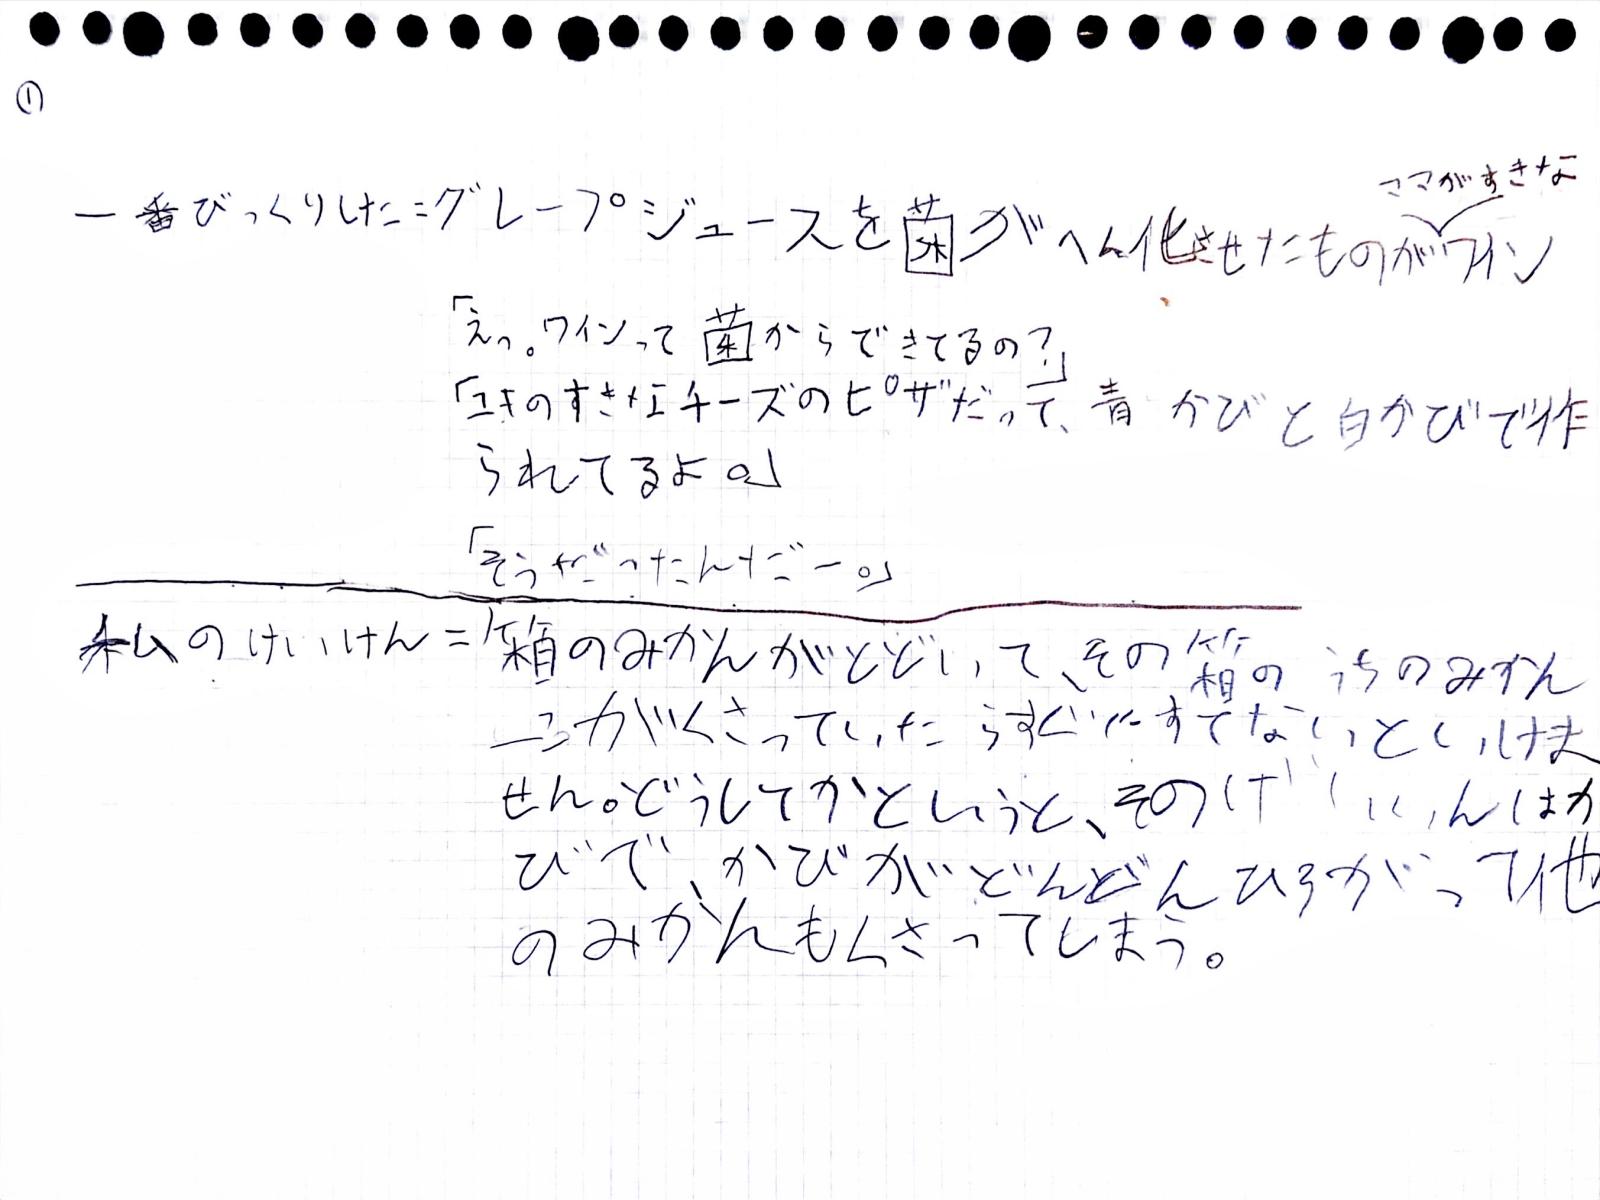 ①
ママがすきな
一番びっくりした=グレープジュースを菌がへん化させたものがワイン
「えっ。ワインって菌からできてるの？」
「ユキのすきなチーズのピザだって、青かびと白かびで作
られてるよ。」
「そうだったんだー。」
私のけいけん=箱のみかんがとどいて、その箱のうちのみかん
一つがくさっていたらすぐにすてないといけま
せん。どうしてかというと、そのげんいんはか
びで、かびがどんどんひろがって他
のみかんもくさってしまう。